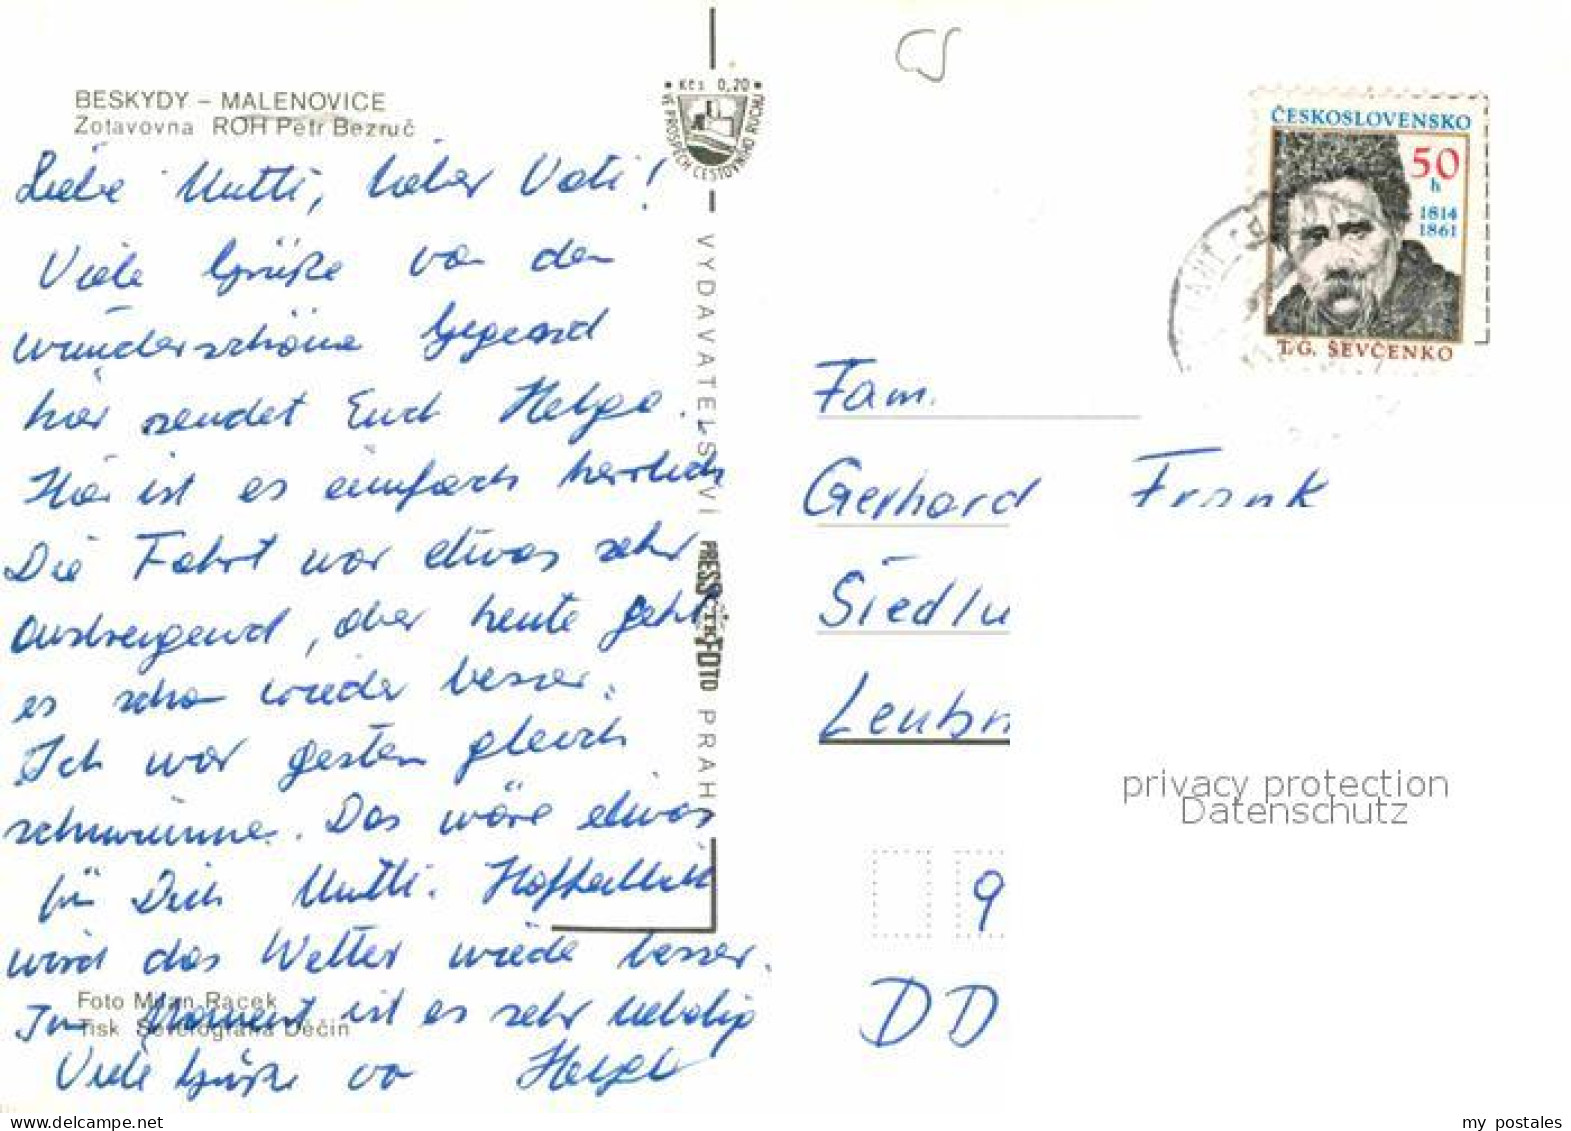 BESKYDY – MALENOVICE
Zotavovna ROH Petr Bezruč
Liebe Mutti, lieber Vati!
Viele Grüße von der
wunderschöne Gegend
hier sendet Euch Helga.
Hier ist es einfach herrlich
Die Fahrt war etwas sehr
anstrengend, aber heute geht
es schon wieder besser.
Ich war gestern gleich
schwimmen. Das wäre etwas
für Dich Mutti. Hoffentlich
wird das Wetter wieder besser.
Im Moment ist es sehr neblig
Viele Grüße von Helga
Foto Milan Racek
Tisk Severografia Děčín
• Kčs 0,20 •
VE PROSPĚCH CESTOVNÍHO RUCHU
VYDAVATELSTVÍ PRESSFOTO PRAHA
ČTK
CS
ČESKOSLOVENSKO
50
h
1814
1861
T.G. ŠEVČENKO
Fam.
Gerhard Frank
Siedlu
Leubn
9
DD
privacy protection
Datenschutz
my postales